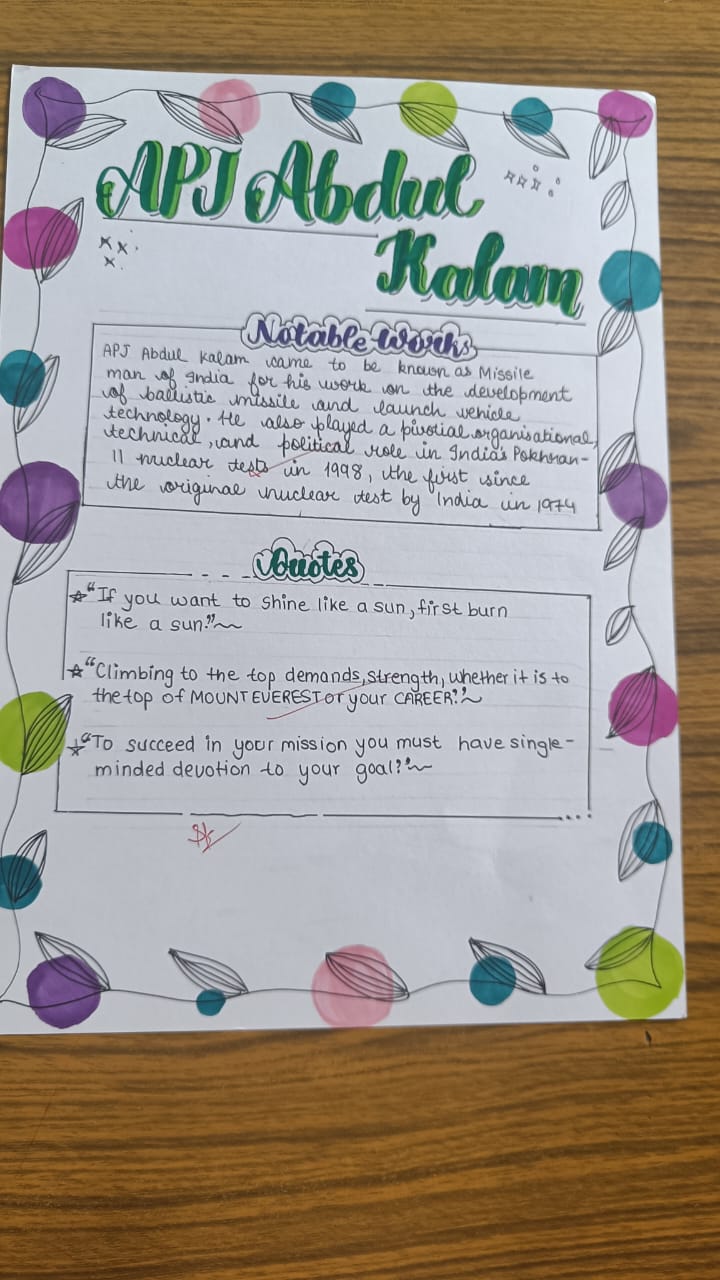 APJ Abdul
Kalam
Notable Works
APJ Abdul Kalam came to be known as Missile
man of India for his work on the development
of ballistic missile and launch vehicle
technology. He also played a pivotial organisational,
technical, and political role in India's Pokhran-
II nuclear tests in 1998, the first since
the original nuclear test by India in 1974
Quotes
"If you want to shine like a sun, first burn
like a sun."
"Climbing to the top demands, strength, whether it is to
the top of MOUNT EVEREST or your CAREER."
"To succeed in your mission you must have single-
minded devotion to your goal."